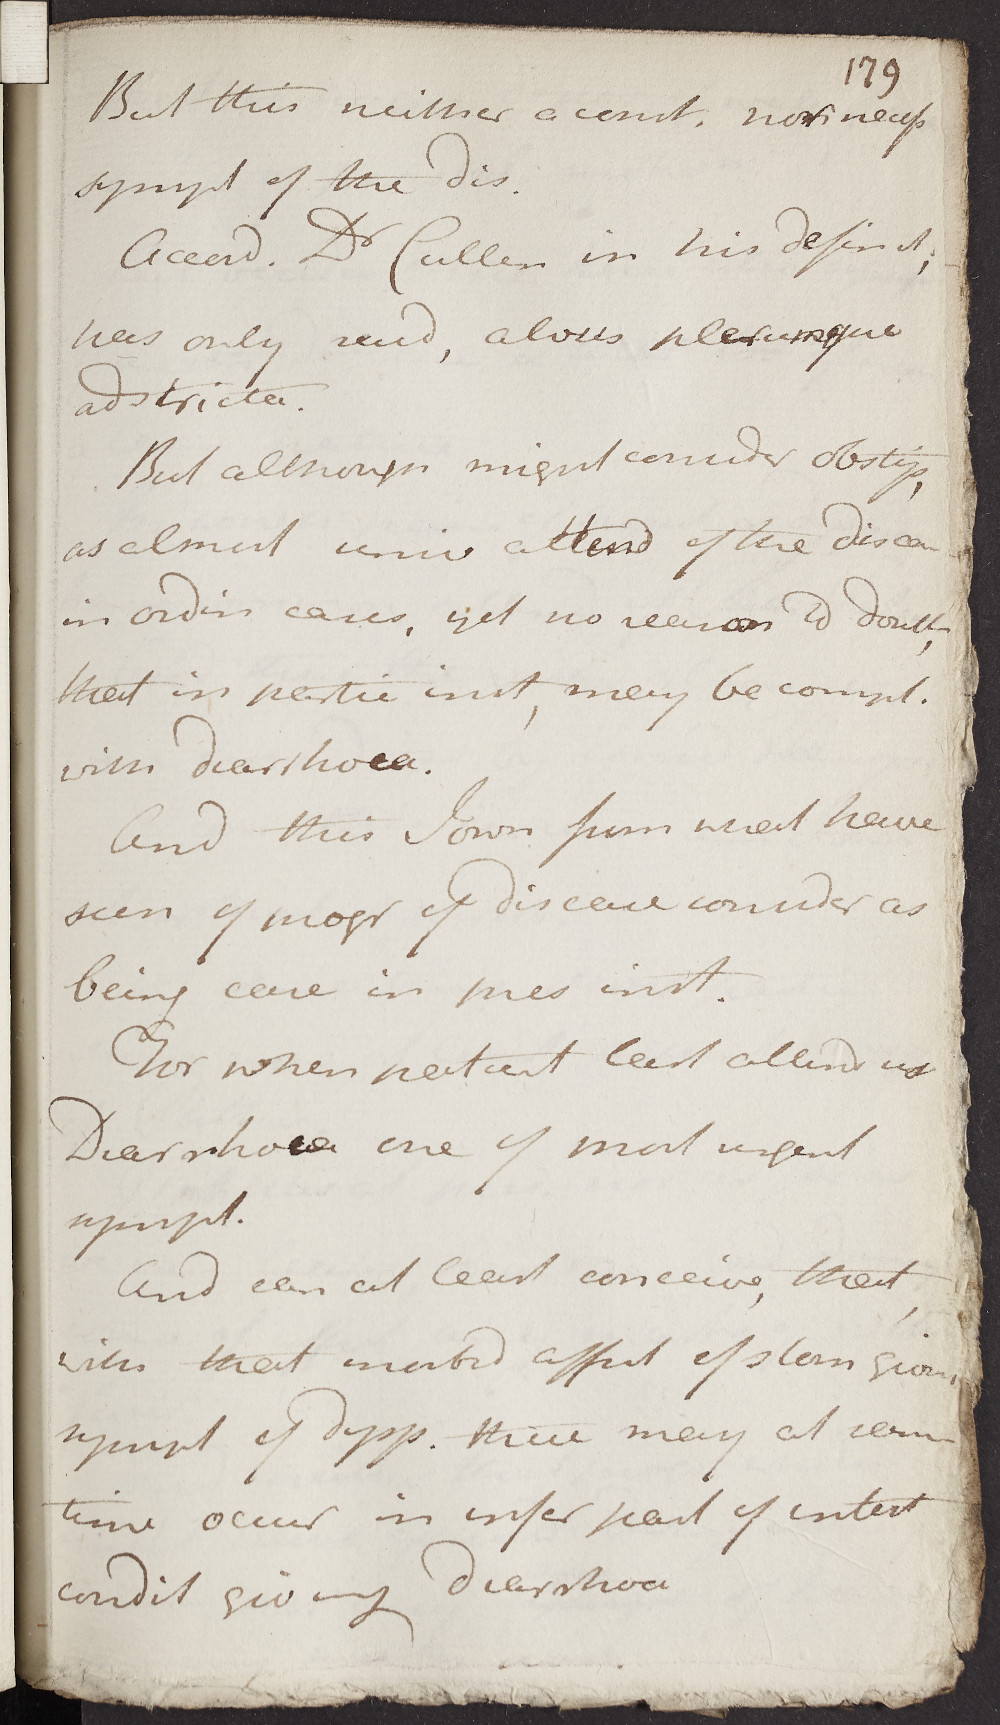 179
But this neither a const. nor necess
sympt of the dis.
Accord. Dr Cullen in his definit,
has only said, alvus plerumque
adstricta.
But although might consider obstip,
as almost univ attend of the disea
in ordin cases, yet no reason to doubt,
that in partic inst, may be compl.
with diarrhoea.
And this I own from what have
seen of progr of disease consider as
being case in pres inst.
For when patient last attend us
Diarrhoea one of most urgent
sympt.
And can at least conceive, that,
with that morbid affect of stom giving
sympt of dysp. there may at same
time occur in infer part of intest
condit giving diarrhoea